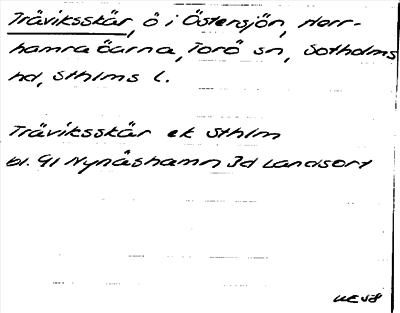 Träviksskär, ö i Östersjön, Herr-
hamra öarna, Torö sn, Sotholms
hd, Sthlms l.
Träviksskär ek Sthlm
bl. 91 Nynäshamn Id Landsort